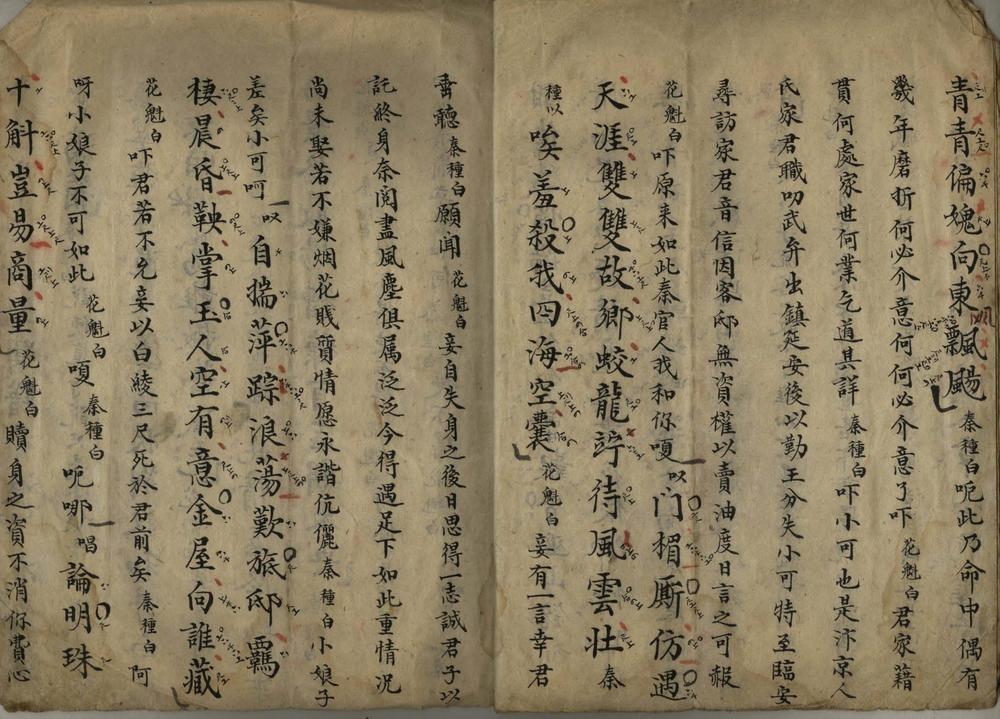 青青偏媿向東飄飄颺秦種白呃此乃命中偶有
幾年磨折何必介意何何必介意了吓花魁白君家藉
貫何處家世何業乞道其詳秦種白吓小可也是汴京人
氏家君職叨武弁出鎮延安後以勤王分失小可特至臨安
尋訪家君音信因客邸無資權以賣油度日言之可赧
花魁白吓原来如此秦官人我和你嗄㕛门楣厮仿遇
天涯雙雙故鄉蛟龍竚待風雲壯秦
種以唉羞殺我四海空囊花魁白妾有一言幸君
垂聽秦種白願闻花魁白妾自失身之後日思得一志誠君子以
託終身奈阅盡風塵俱属泛泛今得遇足下如此重情况
尚未娶若不嫌烟花賎質情愿永諧伉儷秦種白小娘子
差矣小可呵㕛自揣萍踪浪蕩歎旅邸羈
棲晨昏鞅掌玉人空有意金屋向誰藏
花魁白吓君若不允妾以白綾三尺死於君前矣秦種白阿
呀小娘子不可如此花魁白嗄秦種白呃哪唱論明珠
十斛豈易商量花魁白贖身之資不消你費心